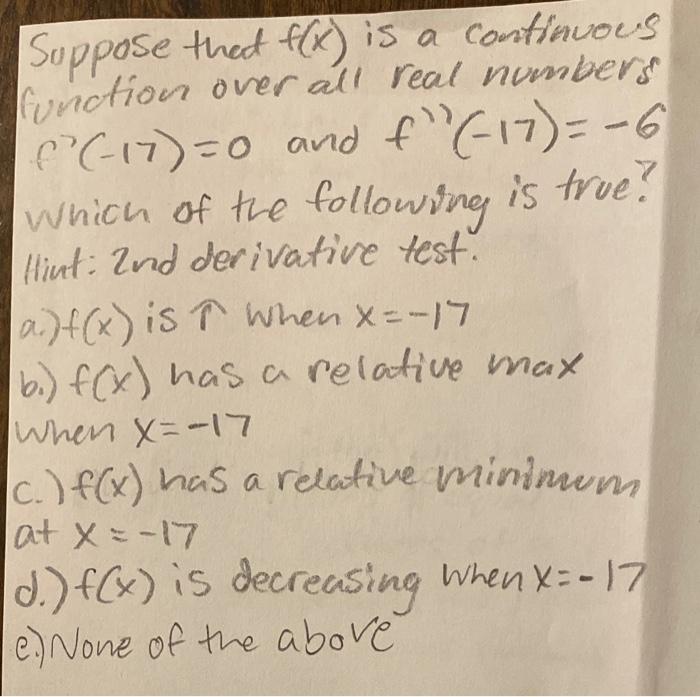 Suppose that f(x) is a continuous
function over all real numbers
f'(-17)=0 and f''(-17)=-6
Which of the following is true?
Hint: 2nd derivative test.
a.) f(x) is ↑ when x=-17
b.) f(x) has a relative max
when x=-17
c.) f(x) has a relative minimum
at x=-17
d.) f(x) is decreasing when x=-17
e.) None of the above